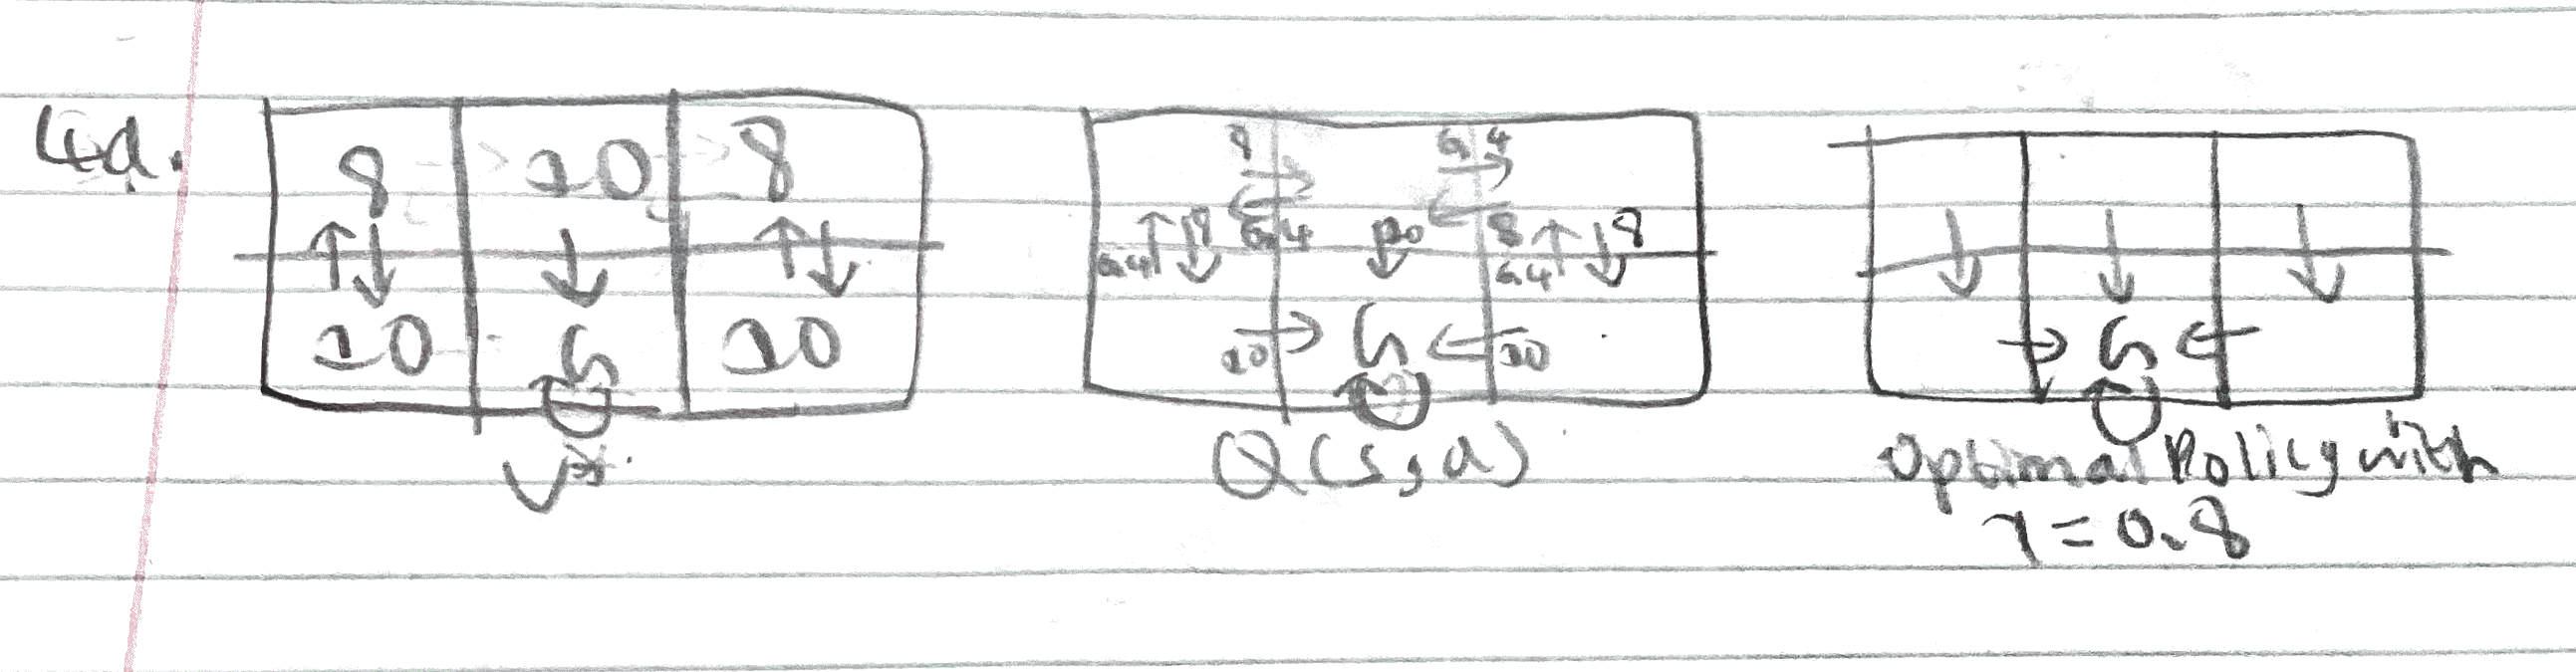 4a.
8 10 8
10 G 10
V*
8 6.4
6.4 8 6.4 10 8 6.4 8
10 G 10
Q(s,a)
G
Optimal Policy with
γ=0.8